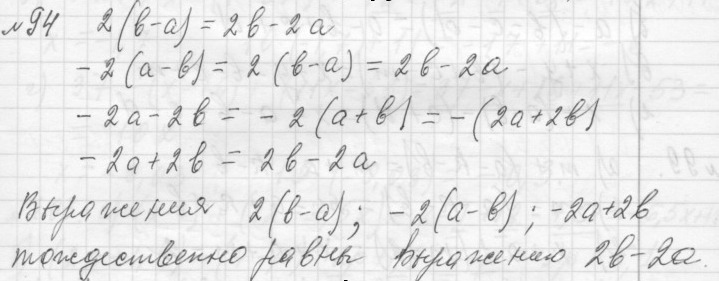 №94 2(в-а) = 2в-2а
-2(а-в) = 2(в-а) = 2в-2а
-2а-2в = -2(а+в) = -(2а+2в)
-2а+2в = 2в-2а
Выражения 2(в-а); -2(а-в); -2а+2в
тождественно равны выражению 2в-2а.